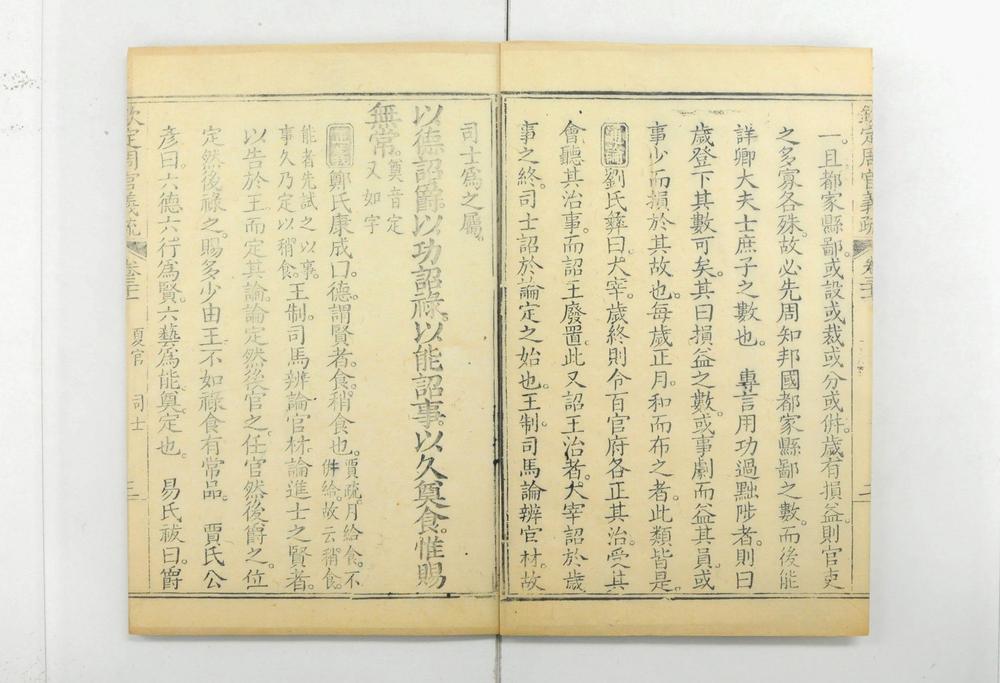 欽定周官義疏
一。且都家縣鄙。或設或裁或分或併。歲有損益。則官吏
之多寡各殊。故必先周知邦國都家縣鄙之數。而後能
詳卿大夫士庶子之數也。　專言用功過黜陟者。則曰
歲登下其數可矣。其曰損益之數。或事劇而益其員。或
事少而損於其故也。每歲正月。和而布之者。此類皆是。
通論劉氏彝曰。大宰歲終則令百官府各正其治。受其
會。聽其治事。而詔王廢置。此又詔王治者。大宰詔於歲
事之終。司士詔於論定之始也。王制。司馬論辨官材。故
司士爲之屬。
以德詔爵。以功詔祿。以能詔事。以久奠食。惟賜
無常。奠音定
又如字
正義鄭氏康成曰。德。謂賢者。食。稍食也。賈疏。月給食。不
併給。故云稍食。
能者先試之以事。
事久乃定以稍食。王制。司馬辨論官材。論進士之賢者。
以告於王。而定其論。論定然後官之。任官然後爵之。位
定然後祿之。賜多少由王。不如祿食有常品。　賈氏公
彥曰。六德六行爲賢。六藝爲能。奠。定也。　易氏祓曰。爵
欽定周官義疏　夏官　司士　三